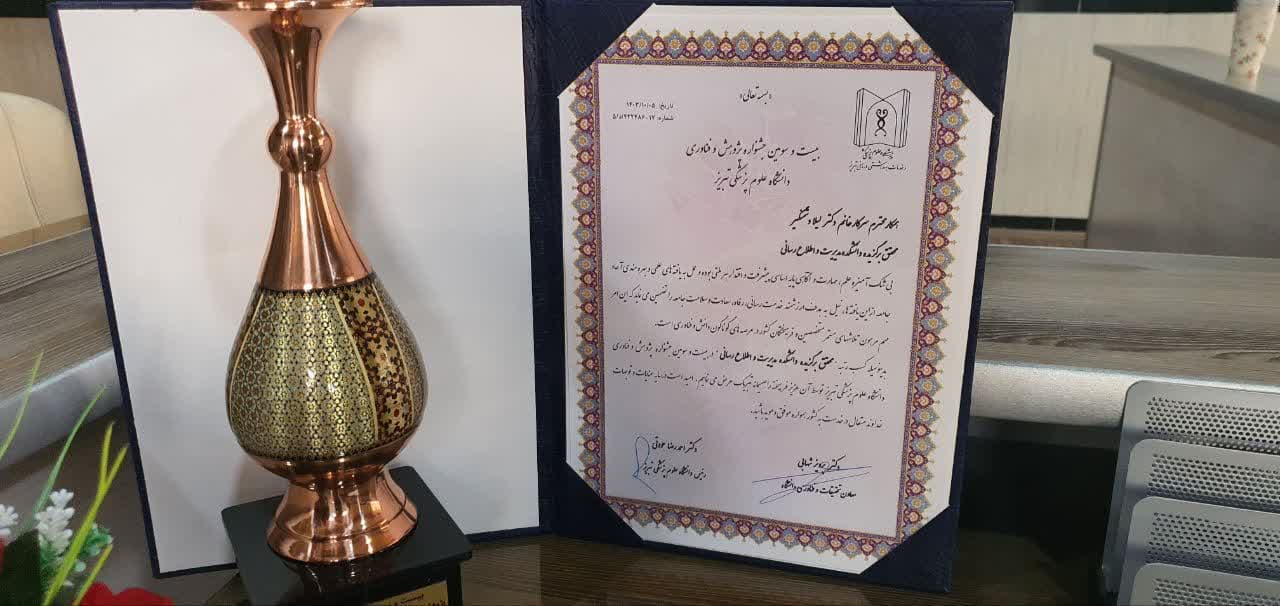 «بسمه تعالی»
تاریخ: ۱۴۰۳/۱۰/۰۵
شماره: ۵/د/۱۲۲۴۸۶۰۱۷
دانشگاه علوم پزشکی
خدمات بهداشتی درمانی تبریز
بیست و سومین جشنواره پژوهش و فناوری
دانشگاه علوم پزشکی تبریز
همکار محترم سرکار خانم دکتر لیلا دشتگیر
محقق برگزیده دانشکده مدیریت و اطلاع رسانی
بی شک آمیزه علم، مهارت و آگاهی پایه اساسی پیشرفت و اقتدار هر ملتی بوده و عمل به یافته های علمی و بهره مندی آحاد
جامعه از این یافته ها، نیل به هدف ارزشمند خدمت رسانی، رفاه، سعادت و سلامت جامعه را تضمین می نماید که این امر
مهم مرهون تلاشهای مستمر متخصصین و فرهیختگان کشور در عرصه های گوناگون دانش و فناوری است.
بدینوسیله کسب رتبه "محقق برگزیده دانشکده مدیریت و اطلاع رسانی" در بیست و سومین جشنواره پژوهش و فناوری
دانشگاه علوم پزشکی تبریز توسط آن عزیز فرهیخته را صمیمانه تبریک عرض می نمایم. امید است در سایه عنایات و توجهات
خداوند متعال در خدمت به کشور همواره موفق و موید باشید.
دکتر پرویز شهابی
معاون تحقیقات و فناوری دانشگاه
دکتر احمدرضا جودتی
رئیس دانشگاه علوم پزشکی تبریز